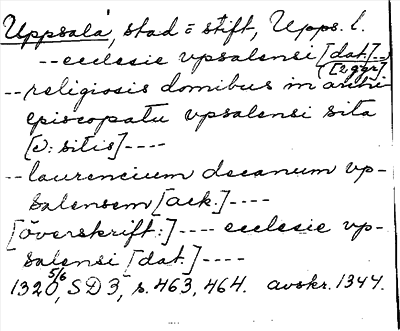 Uppsala, stad = stift, Upps. l.
-- ecclesie vpsalensi [dat.] --
[2 ggr]
-- religiosis domibus in archi
episcopatu vpsalensi sita
[ɔ: sitis] ----
-- laurencium decanum vp-
salensem [ack.] ----
[överskrift:] ---- ecclesie vp-
salensi [dat.] ----
1320 5/6, SD 3, s. 463, 464. avskr. 1344.